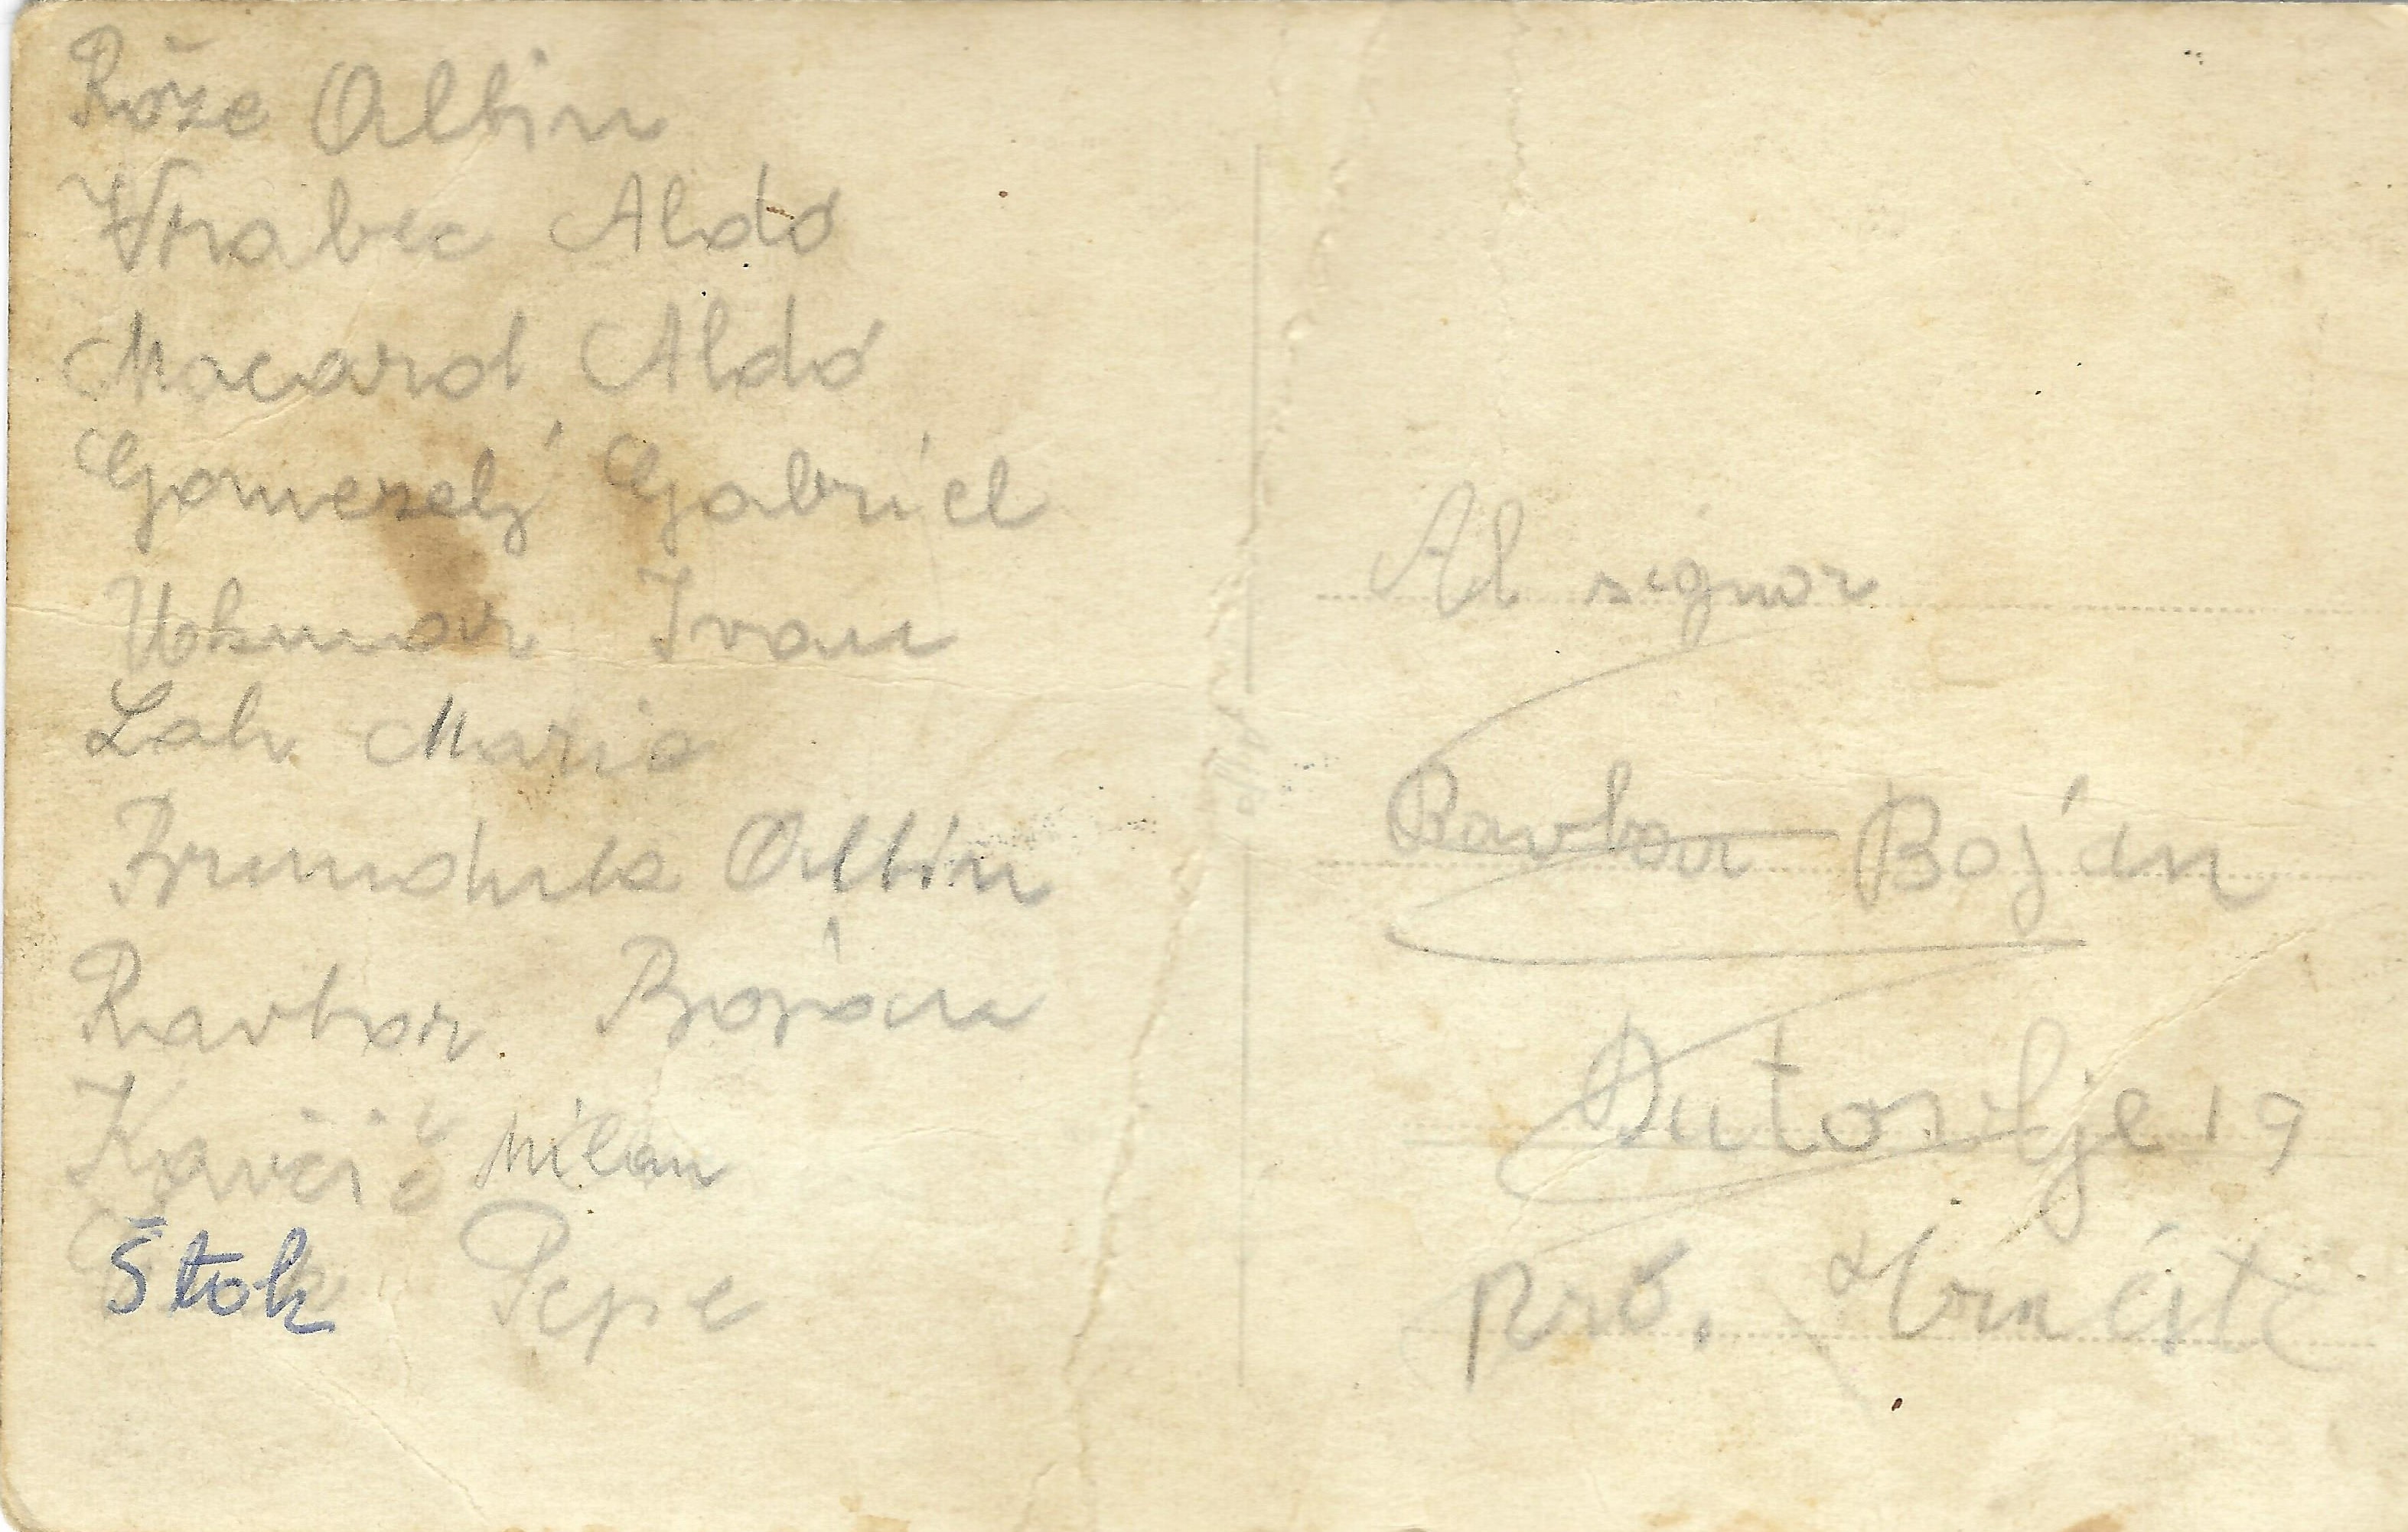 Rože Albin
Vrabec Aldo
Macarol Aldo
Gomezelj Gabriel
Ukmar Ivan
Lah Mario
Albin
Ravbar Bojan
Kavčič Milan
Štok Pepe
Al signor
Ravbar Bojan
Dutovlje 19
pro.